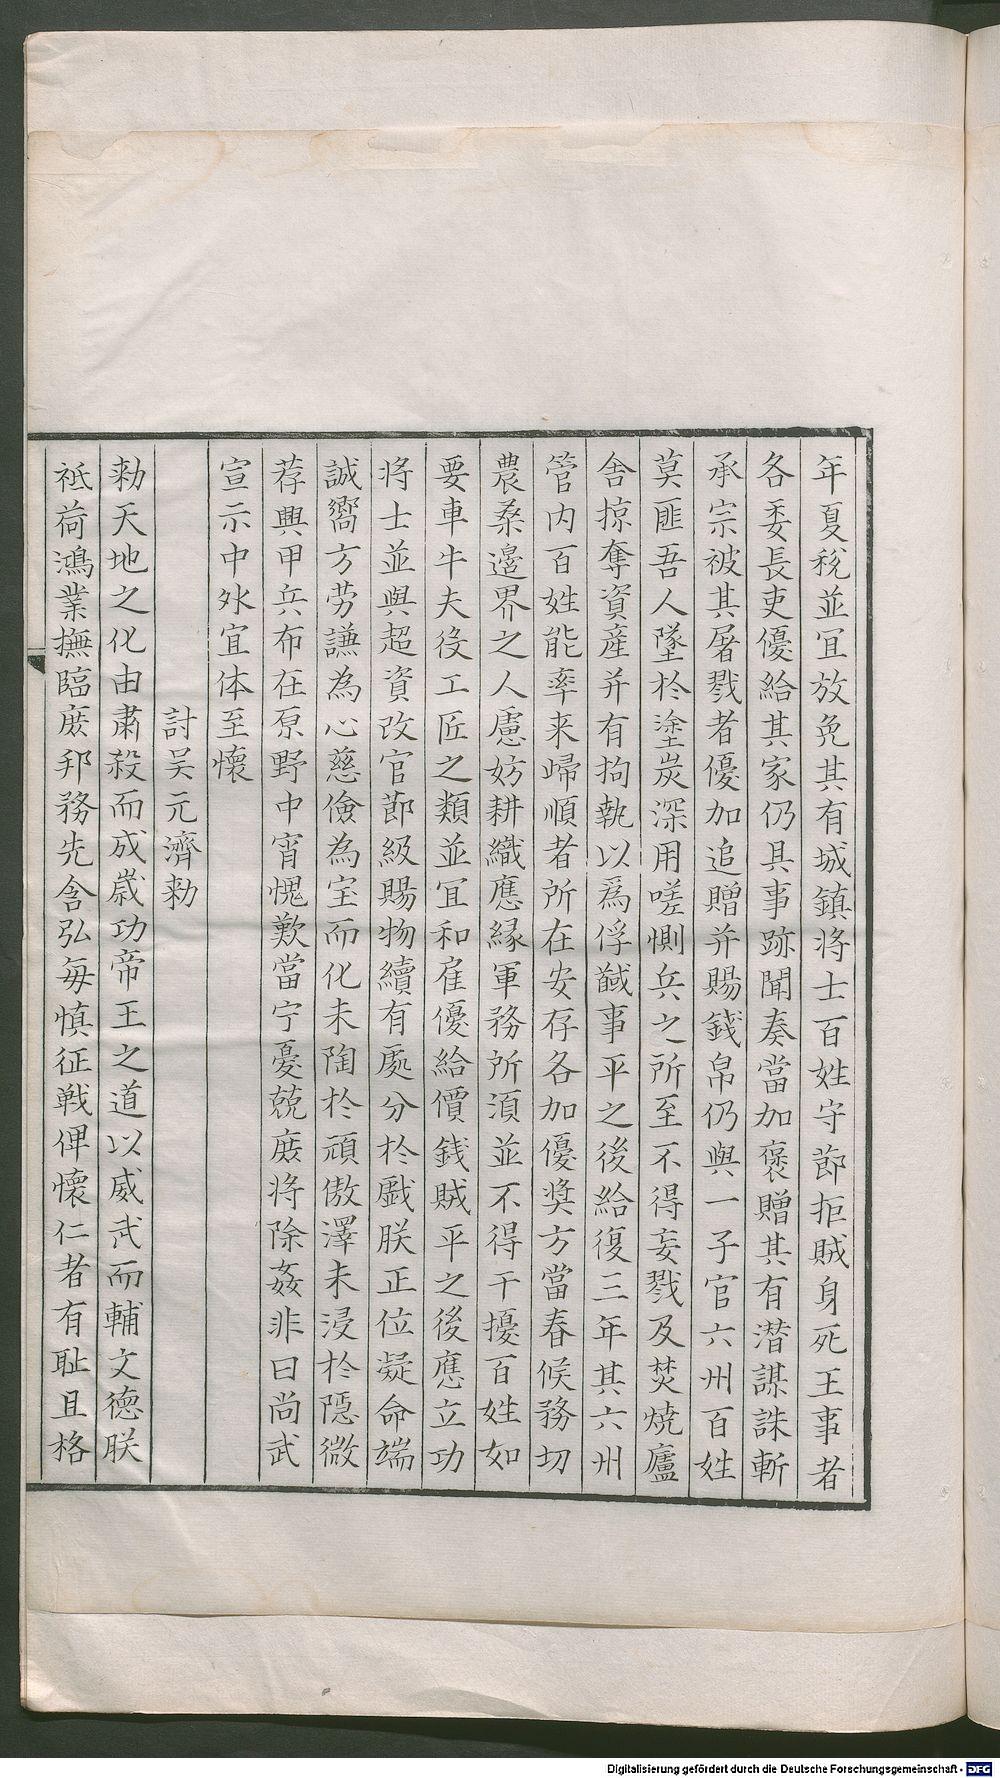 年夏稅並宜放免其有城鎮將士百姓守節拒賊身死王事者
各委長吏優給其家仍具事跡聞奏當加褒贈其有潜謀誅斬
承宗被其屠戮者優加追贈并賜錢帛仍與一子官六州百姓
莫匪吾人墜於塗炭深用嗟惻兵之所至不得妄戮及焚燒廬
舍掠奪資産并有拘執以爲俘馘事平之後給復三年其六州
管内百姓能率来歸順者所在安存各加優奬方當春候務切
農桑邉界之人慮妨耕織應縁軍務所湏並不得干擾百姓如
要車牛夫役工匠之類並宜和雇優給價錢賊平之後應立功
将士並與超資改官莭級賜物續有處分於戲朕正位凝命端
誠嚮方劳謙為心慈儉為宝而化未陶於頑傲澤未浸於隱微
荐興甲兵布在原野中宵愧歎當宁憂兢庻将除姦非曰尚武
宣示中外宜体至懷
討吴元濟勑
勑天地之化由肅殺而成歲功帝王之道以威武而輔文德朕
祗荷鴻業撫臨庻邦務先含弘每慎征戦俾懷仁者有耻且格
Digitalisierung gefördert durch die Deutsche Forschungsgemeinschaft - DFG